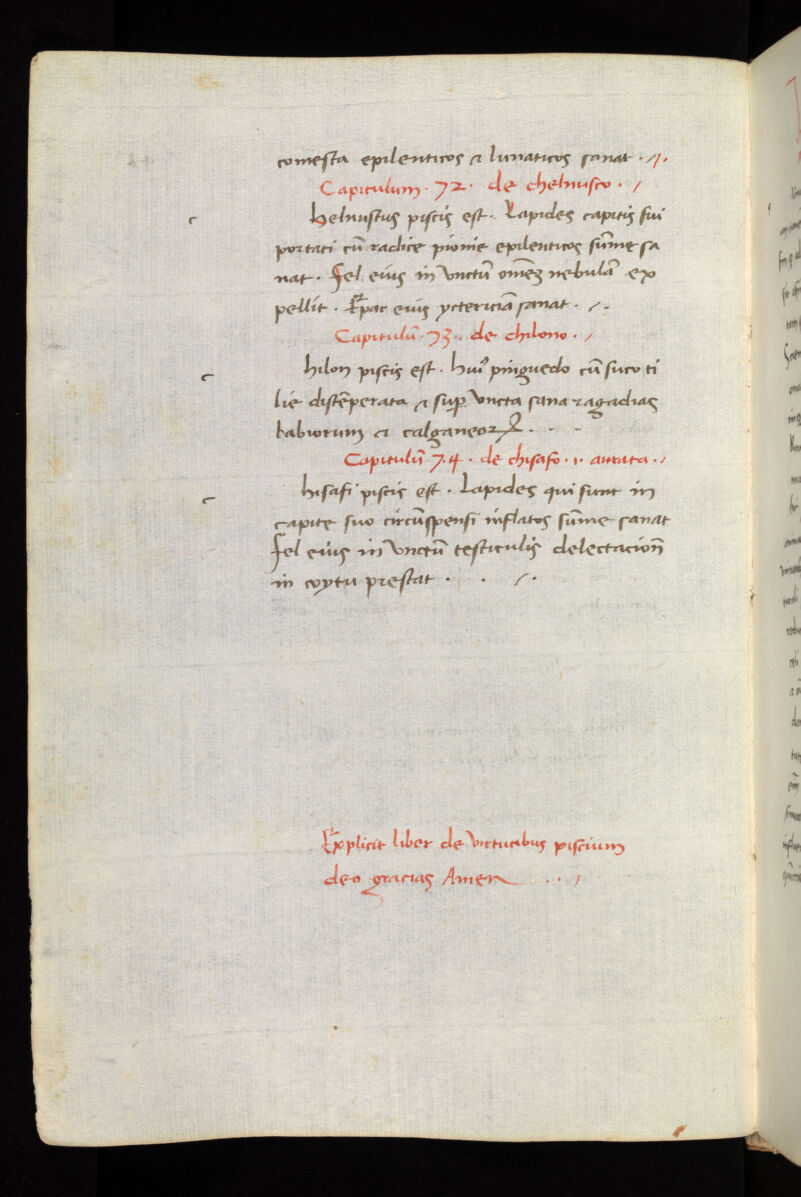 comesta epilenticos ⁊ lunaticos sanat ·
Capitulum · 72 · de chelnusco ·
c helnustus piscis est · Lapides capitis sui
portati cū radice pionie epilenticos sūme sa
nat · Fel eius in vnctū omēʒ nebulā ex
pellit · Epar eius yctericiā sanat ·
Capitulū · 73 · de chilono ·
c hilon piscis est · huiꝰ pinguedo cū suco ti
lie distēperata ⁊ sup vncta sana ragadias
labiorum ⁊ calganeoꝝ ·
Capitulū · 74 · de chisafo · i · aurata ·
c hisafi piscis est · Lapides qui sunt in
capite suo circūspensi inflatos sūme sanat
Fel eius in vnctū testiculis delectacionē
in coytu prestat ·
Explicit liber de virtutibus piscium
deo gracias Amen